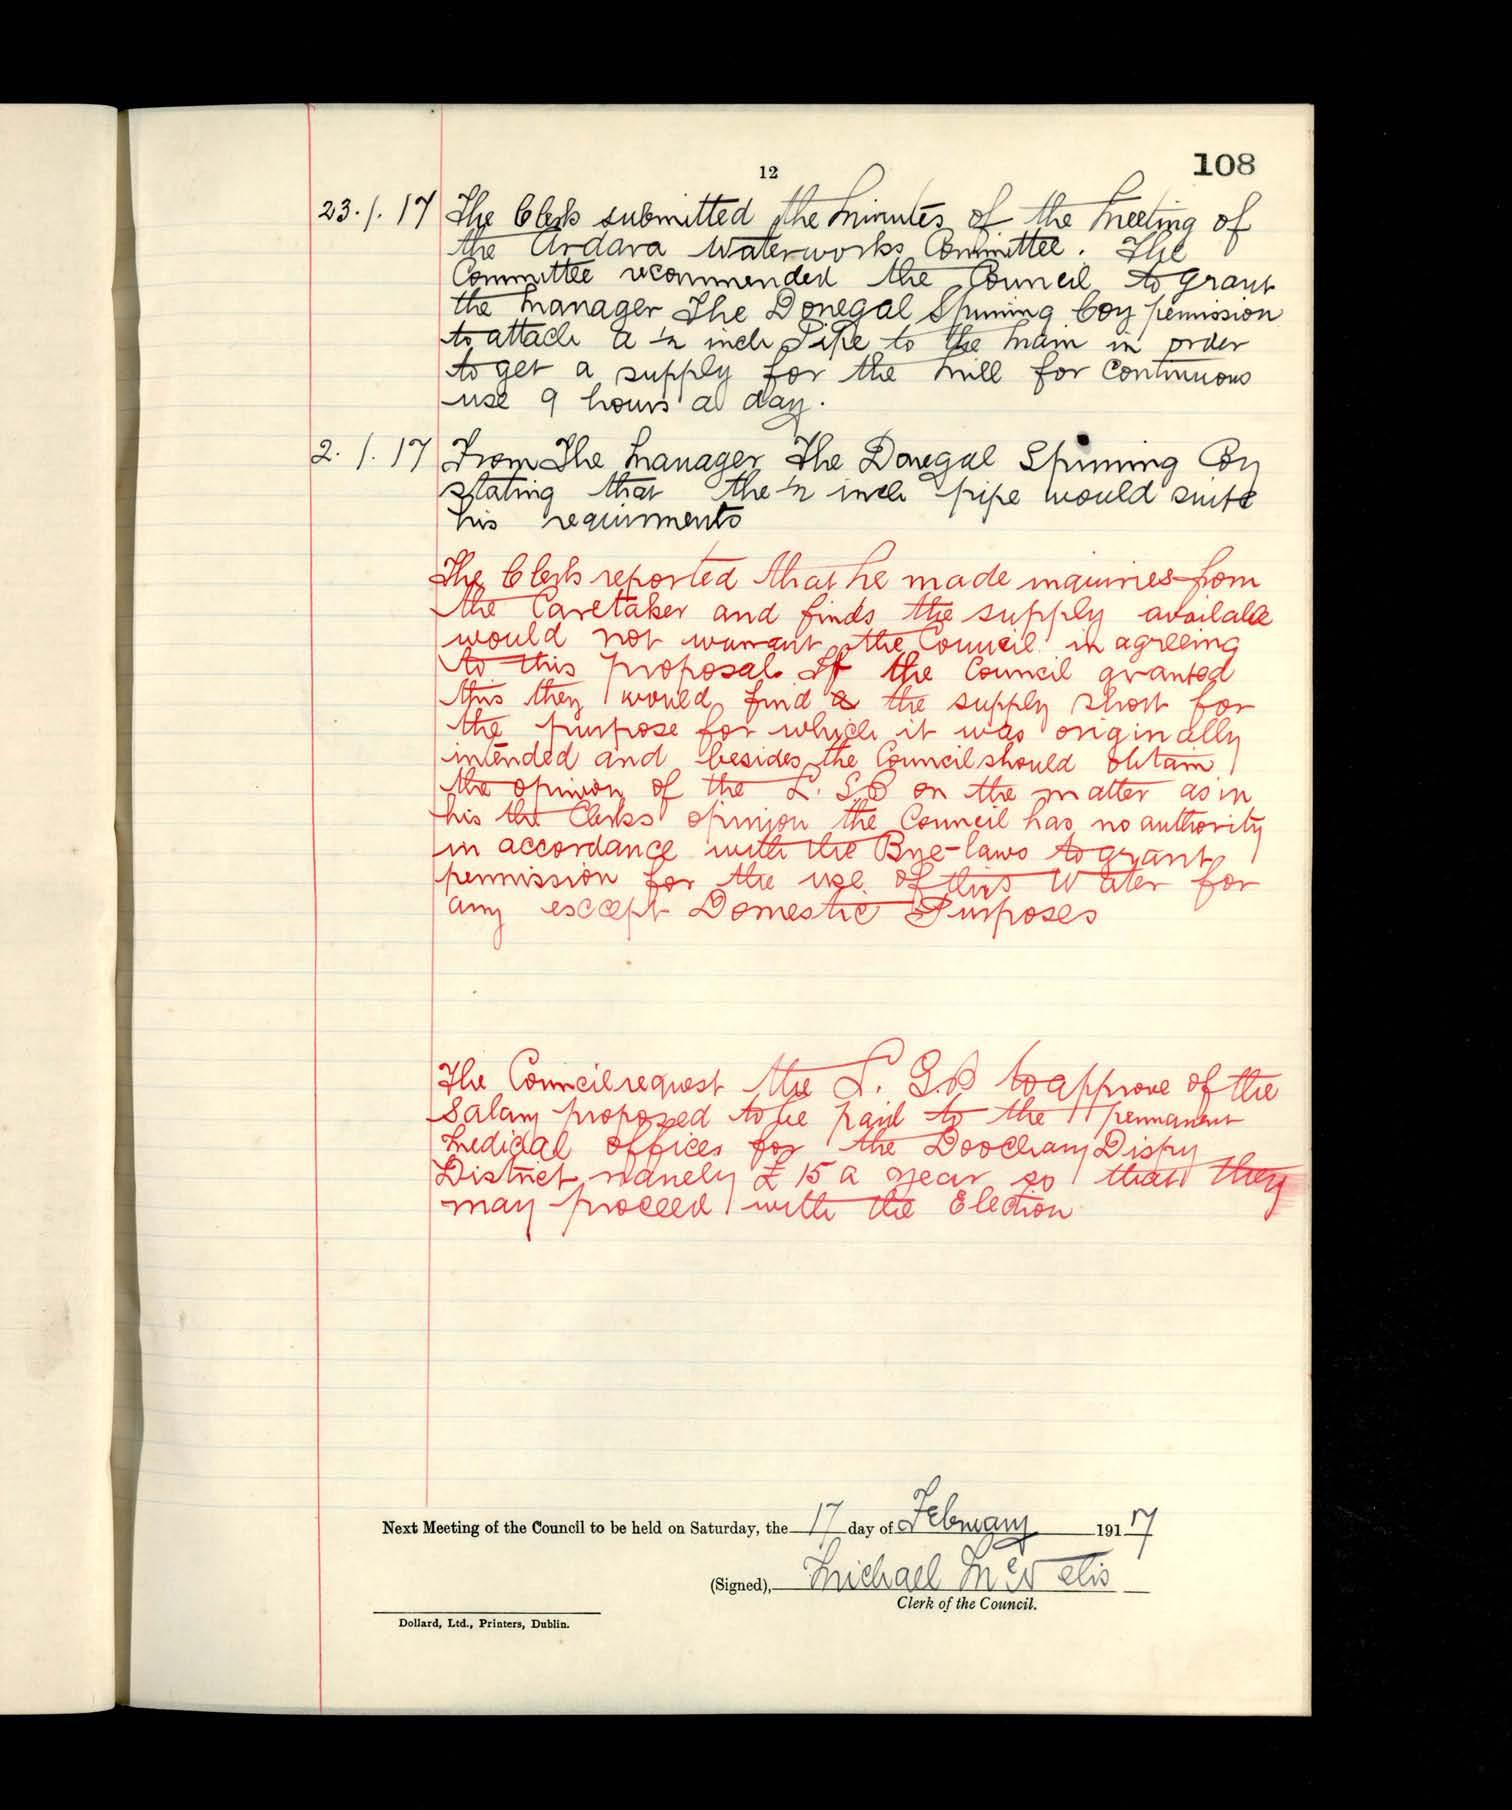 12
108
23.1.17 The Clerk submitted the minutes of the meeting of
the Ardara Waterworks Committee. The
Committee recommended the Council to grant
the manager The Donegal Spinning Coy permission
to attach a ½ inch Pipe to the main in order
to get a supply for the mill for continuous
use 9 hours a day.
2.1.17 From The manager The Donegal Spinning Coy
stating that the ½ inch pipe would suite
his requirments
The Clerk reported that he made inquiries from
the Caretaker and finds the supply available
would not warrant the Council in agreeing
to this proposal. If the Council granted
this they would find the supply short for
the purpose for which it was originally
intended and besides the Council should obtain
the opinion of the L. G B on the matter as in
his the Clerks opinion the Council has no authority
in accordance with the Bye-laws to grant
permission for the use of this Water for
any except Domestic Purposes
The Council request the L. G. B to approve of the
Salary proposed to be paid to the permanent
medical officer for the Doochary Dispy
District namely £15 a year so that they
may proceed with the Election
Next Meeting of the Council to be held on Saturday, the 17 day of February 1917
(Signed), Michael McNelis
Clerk of the Council.
Dollard, Ltd., Printers, Dublin.